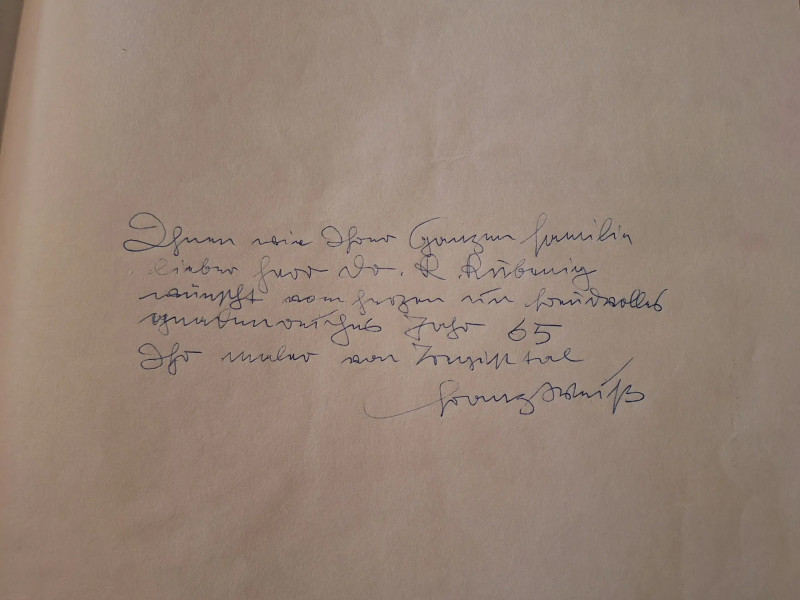 Ihnen wie Ihrer Ganzen Familie
lieber Herr Dr. R Rubenig
wünscht vom herzen ein freudvolles
gnadenreiches Jahr 65
Ihr maler von
Franz Weiß